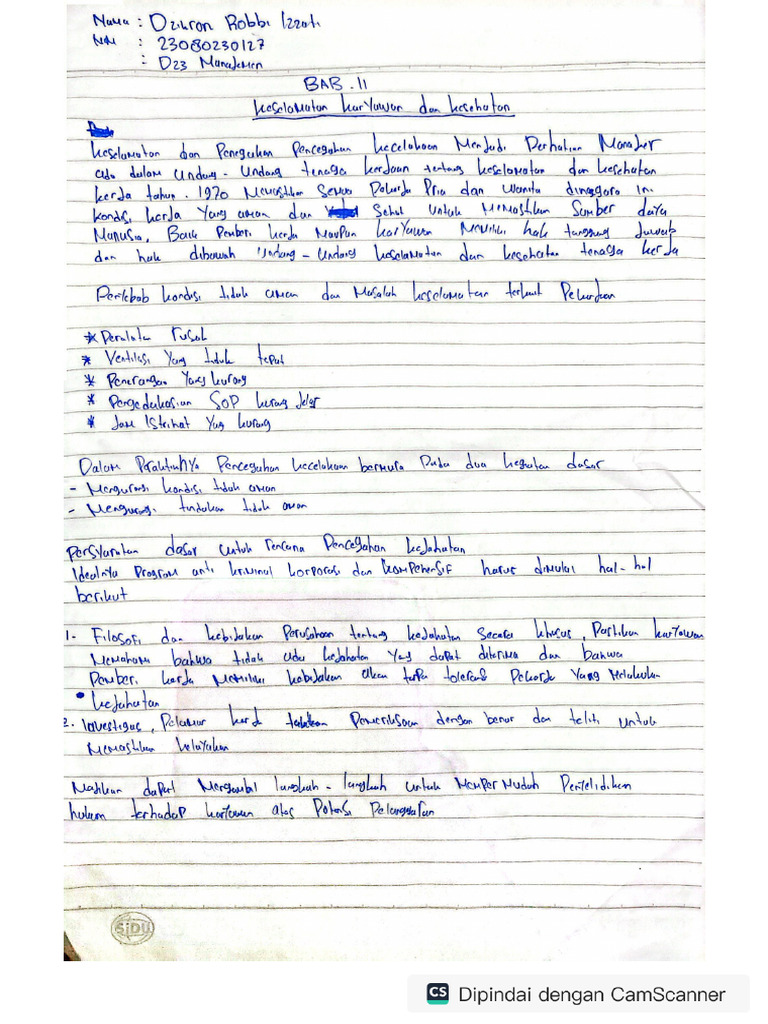 Nama : Dzikron Robbi Izzati
NIM : 23080230127
: D23 Manajemen
BAB . 11
Keselamatan karyawan dan kesehatan
Keselamatan dan Penegahan Pencegahan kecelakaan Menjadi Perhatian Manajer
ada dalam Undang - Undang tenaga kerjaan tentang keselamatan dan kesehatan
kerja tahun . 1970 Memastikan Semua Pekerja Pria dan Wanita dinegara ini
kondisi kerja Yang aman dan Sehat untuk Memastikan Sumber daya
Manusia, Baik Pemberi kerja Maupun karyawan Memiliki hak tanggung Jawab
dan hak dibawah Undang - Undang keselamatan dan kesehatan tenaga kerja
Penyebab kondisi tidak aman dan Masalah keselamatan terkait Pekerjaan
* Peralatan rusak
* Ventilasi Yang tidak tepat
* Penerangan Yang kurang
* Pengedukasian SOP kurang Jelas
* Jam Istrihat Yang kurang
Dalam Praktiknya Pencegahan kecelakaan bermula Pada dua kegiatan dasar
- Mengurangi kondisi tidak aman
- Mengurangi tindakan tidak aman
Persyaratan dasar untuk rencana Pencegahan kejahatan
Idealnya Program anti kriminal korporasi dan komprehensif harus dimulai hal - hal
berikut
1. Filosofi dan kebijakan Perusahaan tentang kejahatan Secara khusus, Pastikan karyawan
Memahami bahwa tidak ada kejahatan Yang dapat diterima dan bahwa
Pemberi kerja Memiliki kebijakan akan tanpa toleransi Pekerja Yang Melakukan
• kejahatan
2. Investigasi, Pelamar kerja Pemeriksaan dengan benar dan teliti untuk
Memastikan kelayakan
dapat Mengambil langkah - langkah untuk Mempermudah Penyelidikan
hukum terhadap karyawan atas Potensi Pelanggaran
SiDU
CS Dipindai dengan CamScanner